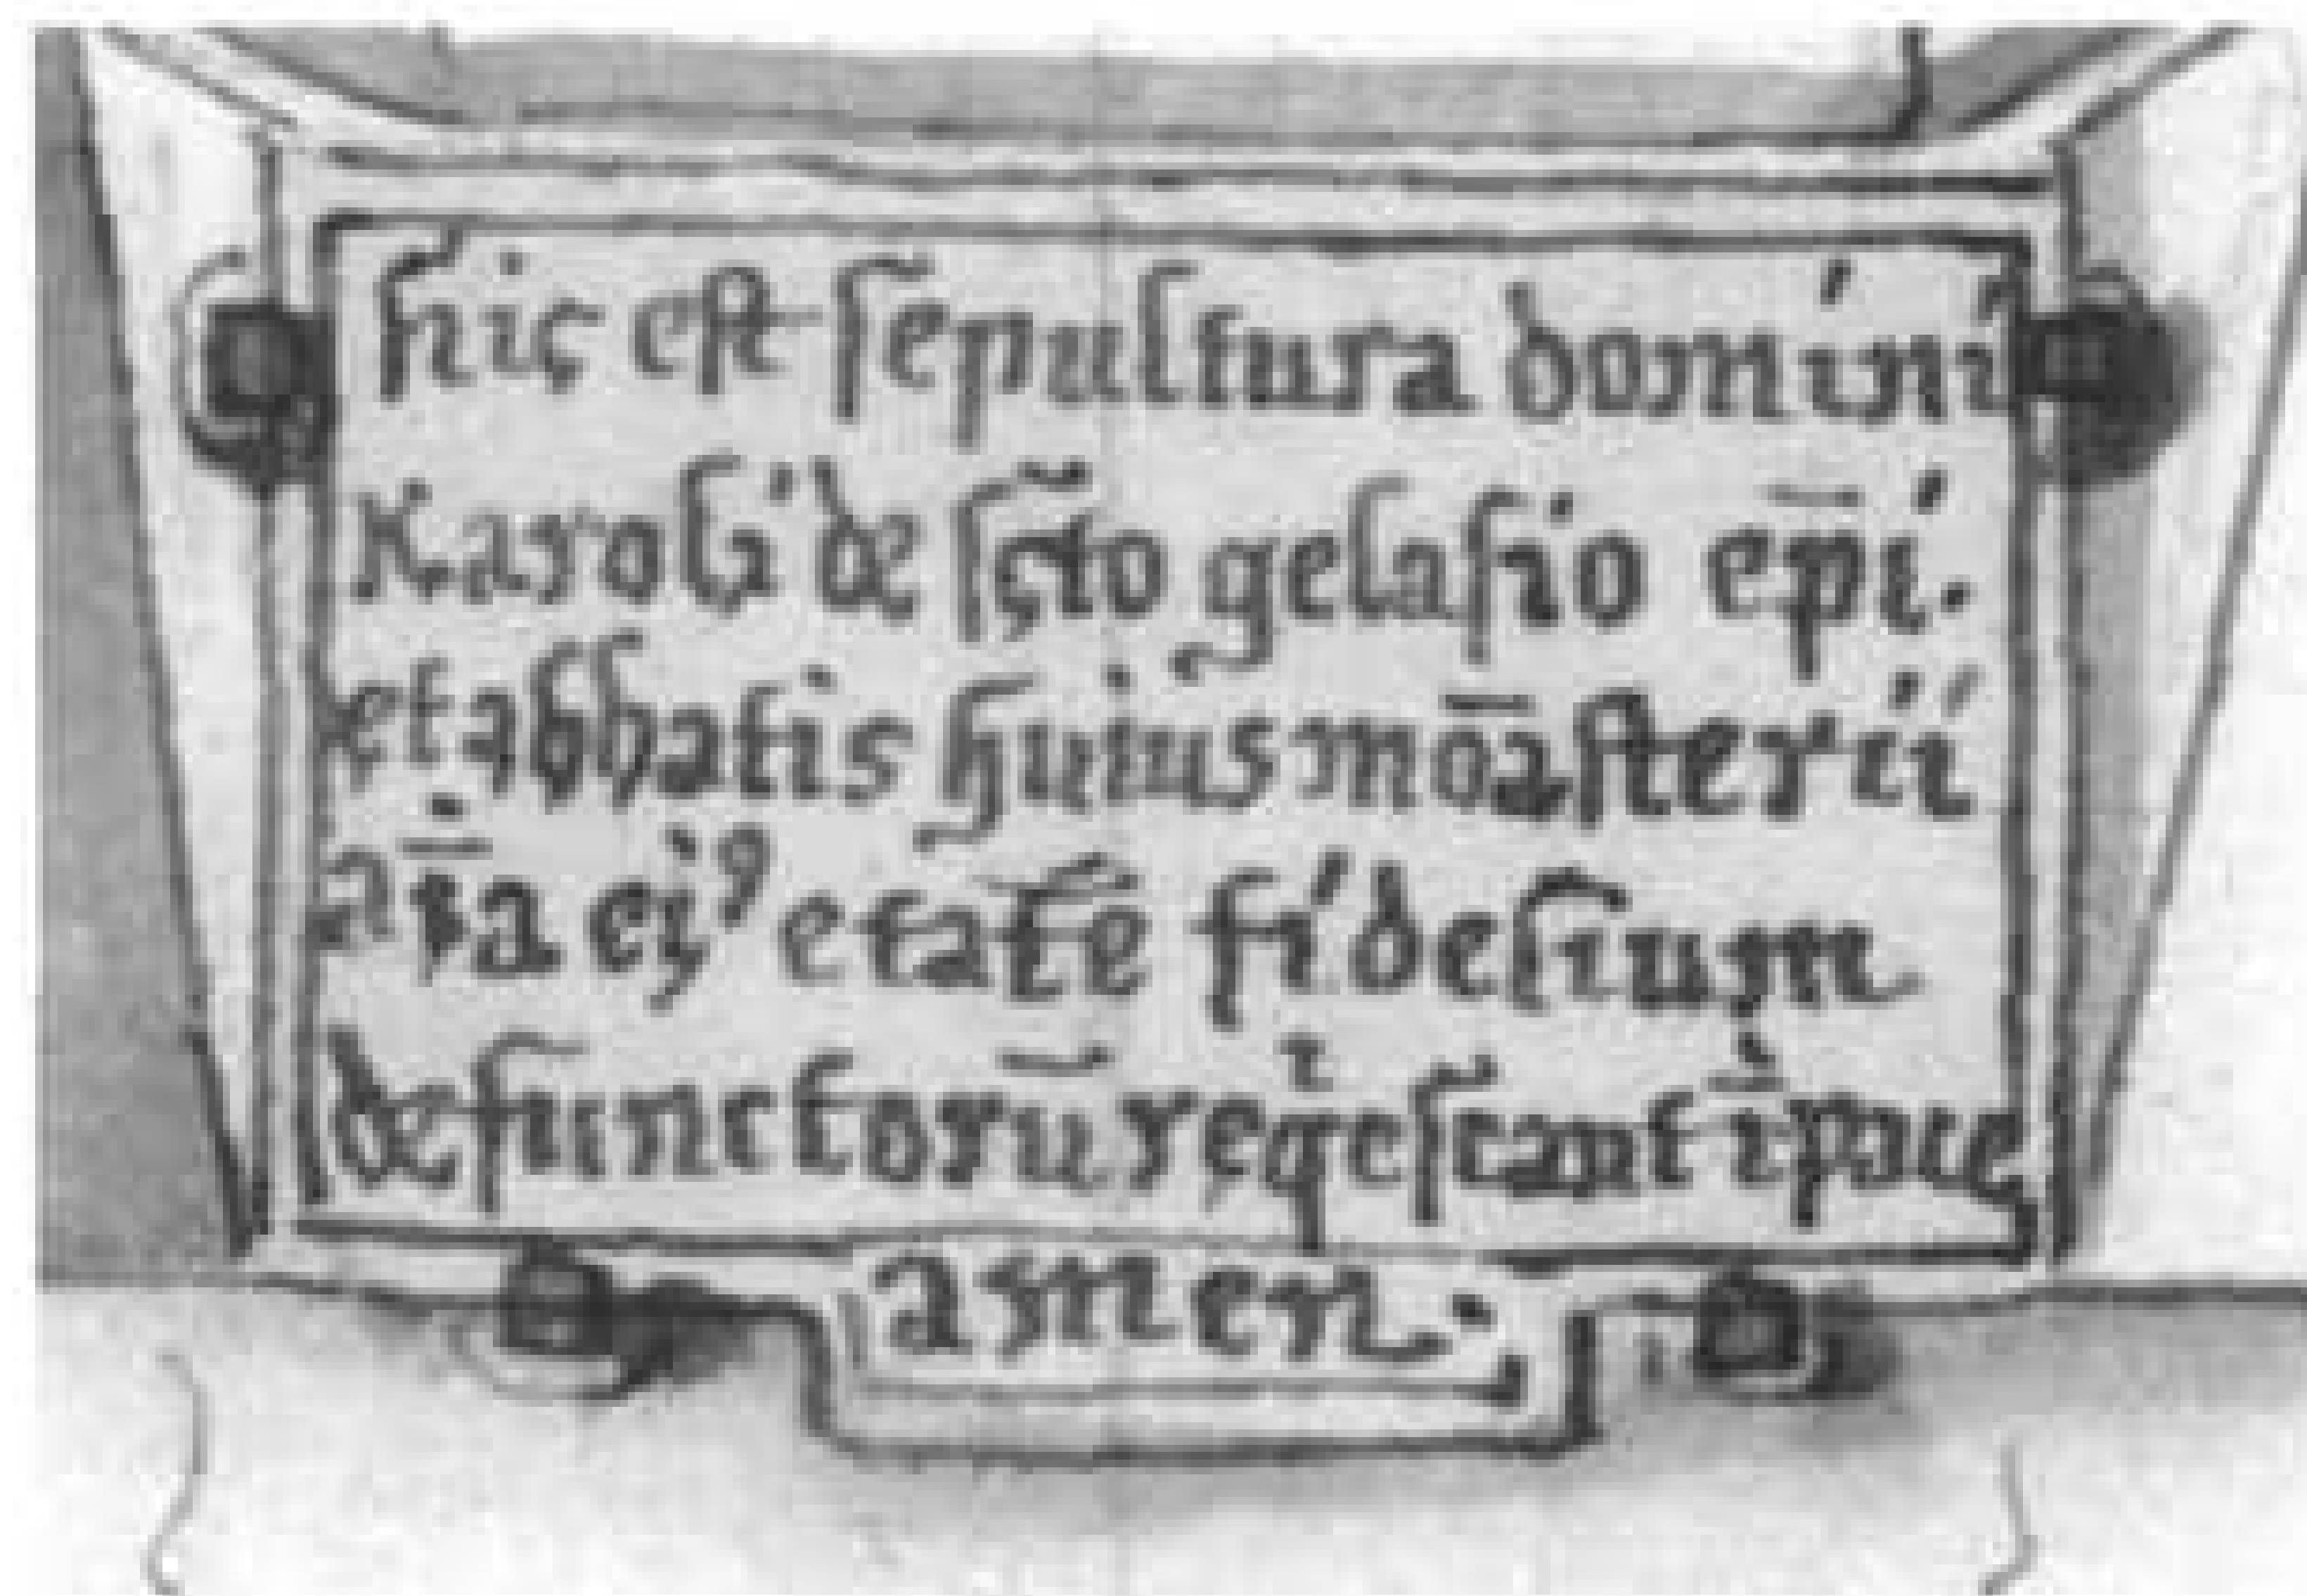 hic est sepultura domini
Karoli de scto gelasio epi.
et abbatis huius mōasterii
aīa ei⁹ et atē fidelium
defunctorū reqͥescant ī pace
amen.